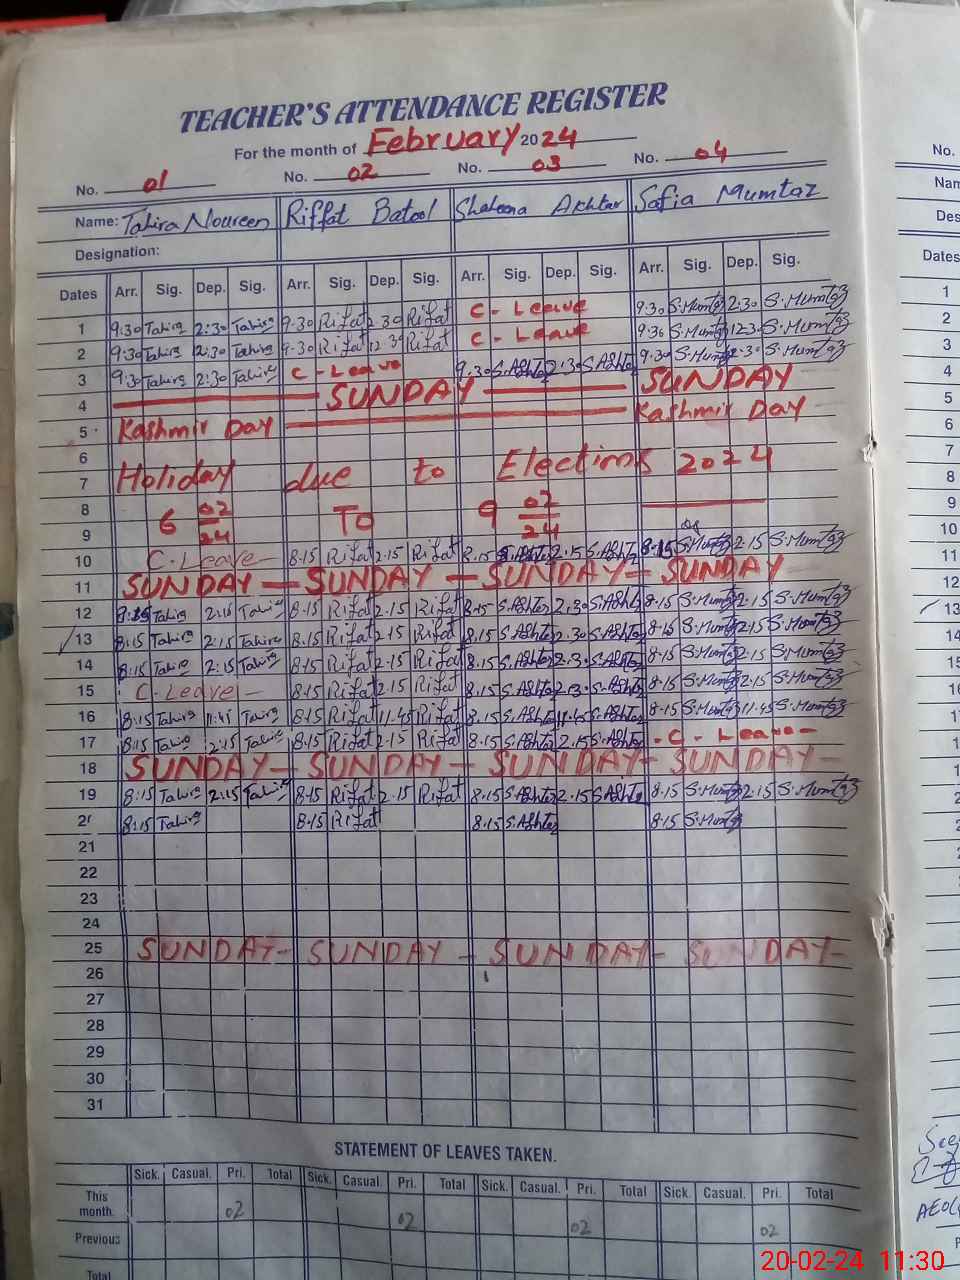 TEACHER'S ATTENDANCE REGISTER
For the month of February 2024
No. 01 No. 02 No. 03 No. 04
Name: Tahira Noureen Riffat Batool Shaheena Akhtar Safia Mumtaz
Designation:
Dates Arr. Sig. Dep. Sig. Arr. Sig. Dep. Sig. Arr. Sig. Dep. Sig. Arr. Sig. Dep. Sig.
1 9:30 Tahira 2:30 Tahira 9-30 Rifat 2 30 Rifat C - Leave 9.30 S.Mumtaz 2:30 S.Mumtaz
2 9:30 Tahira 12:30 Tahira 9-30 Rifat 12 30 Rifat C - Leave 9.30 S.Mumtaz 12:30 S.Mumtaz
3 9:30 Tahira 2:30 Tahira C - Leave 9.30 S.Ashtar 2:30 S.Ashtar 9.30 S.Mumtaz 2.30 S.Mumtaz
4 SUNDAY SUNDAY
5 Kashmir Day Kashmir Day
6
7 Holiday due to Elections 2024
8
9 6 02/24 To 9 02/24
10 C. Leave 8.15 Rifat 2.15 Rifat 8.15 S.Ashtar 2.15 S.Ashtar 8.15 S.Mumtaz 2.15 S.Mumtaz
11 SUNDAY — SUNDAY — SUNDAY — SUNDAY
12 8:15 Tahira 2:15 Tahira 8-15 Rifat 2.15 Rifat 8.15 S.Ashtar 2.30 S.Ashtar 8.15 S.Mumtaz 2.15 S.Mumtaz
13 8:15 Tahira 2:15 Tahira 8.15 Rifat 2.15 Rifat 8.15 S.Ashtar 2.30 S.Ashtar 8.15 S.Mumtaz 2.15 S.Mumtaz
14 8:15 Tahira 2:15 Tahira 8.15 Rifat 2.15 Rifat 8.15 S.Ashtar 2.30 S.Ashtar 8.15 S.Mumtaz 2.15 S.Mumtaz
15 C. Leave - 8.15 Rifat 2.15 Rifat 8.15 S.Ashtar S.Ashtar 8.15 S.Mumtaz 2.15 S.Mumtaz
16 8:15 Tahira 11:45 Tahira 8.15 Rifat 11.45 Rifat 8.15 S.Ashtar 11.45 S.Ashtar 8.15 S.Mumtaz 11.45 S.Mumtaz
17 8:15 Tahira 2:15 Tahira 8.15 Rifat 2.15 Rifat 8.15 S.Ashtar 2.15 S.Ashtar - C - Leave -
18 SUNDAY — SUNDAY — SUNDAY — SUNDAY -
19 8:15 Tahira 2:15 Tahira 8.15 Rifat 2.15 Rifat 8.15 S.Ashtar 2.15 S.Ashtar 8.15 S.Mumtaz 2.15 S.Mumtaz
8:15 Tahira 8.15 Rifat 8.15 S.Ashtar 8.15 S.Mumtaz
21
22
23
24
25 SUNDAY - SUNDAY - SUNDAY - SUNDAY -
26
27
28
29
30
31
STATEMENT OF LEAVES TAKEN.
Sick. Casual. Pri. Total Sick. Casual. Pri. Total Sick. Casual. Pri. Total Sick. Casual. Pri. Total
This month. 02 02 02 02
Previous
Total
No.
Dates
1
2
3
4
5
6
7
8
9
10
11
12
13
14
20-02-24 11:30